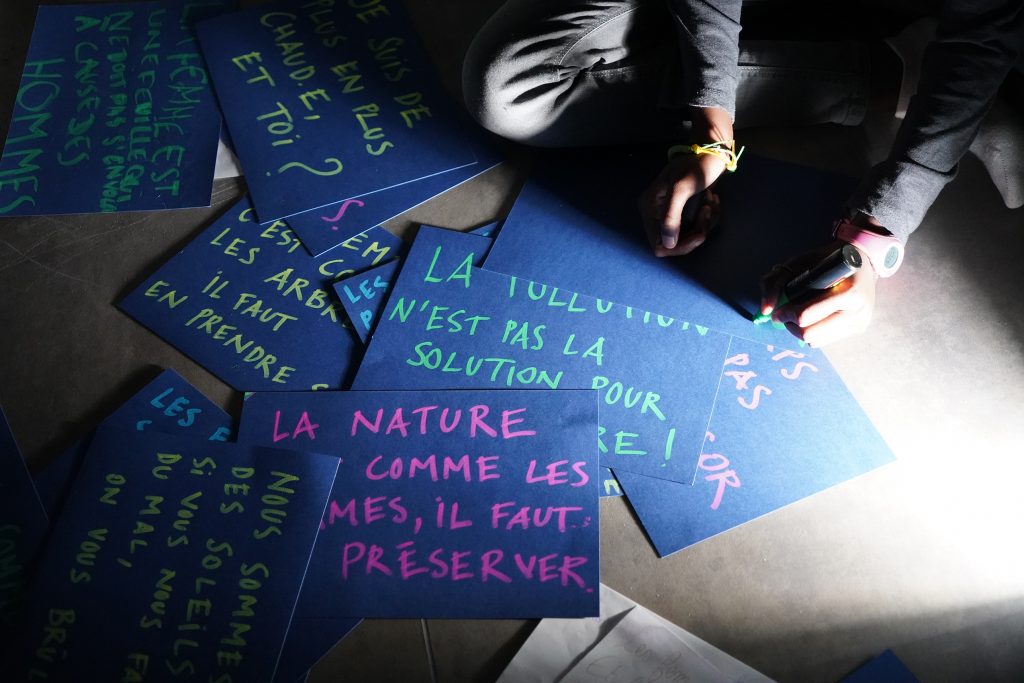 LA FEMME EST
UNE FEUILLE QUI
NE DOIT PAS S'ENVOLER
À CAUSE DES
HOMMES
JE SUIS DE
PLUS EN PLUS
CHAUD.E,
ET TOI ?
C'EST
LES ARBR
IL FAUT
EN PRENDRE S
LES
LA POLLUTION
N'EST PAS LA
SOLUTION POUR
RE !
PS
PAS
COR
LES F
LA NATURE
COMME LES
MES, IL FAUT
PRÉSERVER
NOUS SOMMES
DES SOLEILS
SI VOUS NOUS FA
DU MAL,
ON VOUS BRÛ